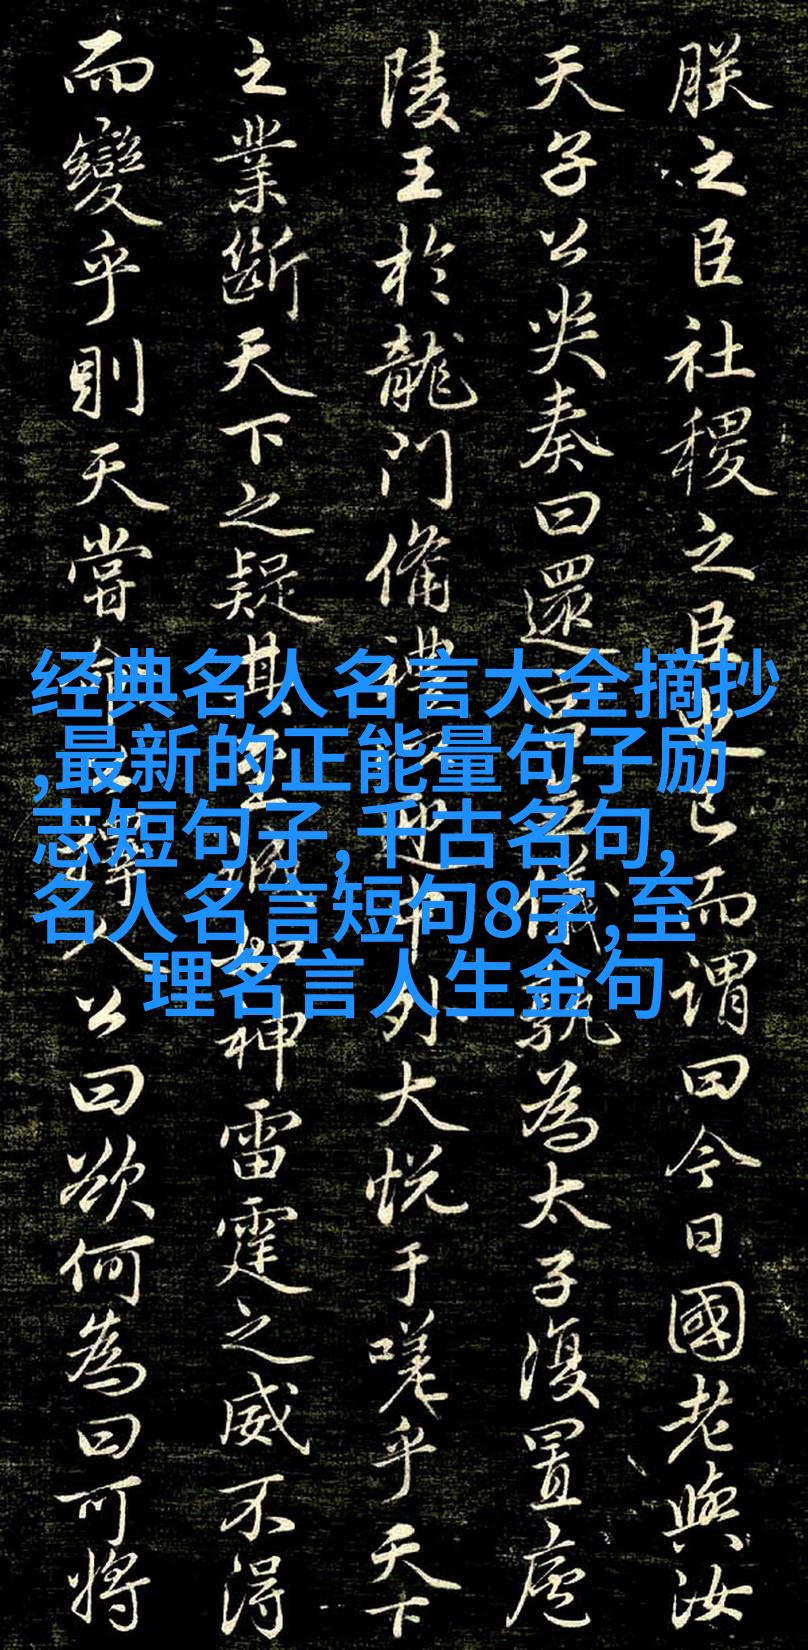 朕之臣社稷之臣已而謂曰今日國老與汝
天子公哭奏曰還宮儀孰為太子復置廬
陵王於龍門備禮迎中外大悅于嗟乎天下
之業斷天下之疑其至誠如神雷霆之威不得
而變乎則天嘗命公擇人公曰欲何為曰可將
经典名人名言大全摘抄
,最新的正能量句子励
志短句子,千古名句,
名人名言短句8字,至
理名言人生金句